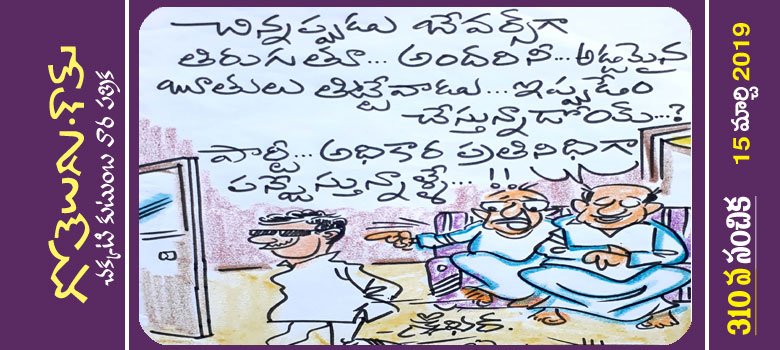 గోతెలుగు.కామ్
చక్కటి కుటుంబ వార పత్రిక
చిన్నప్పుడు బేవర్స్‌గా
తిరుగుతూ... అందరినీ... అడ్డమైన
బూతులు తిట్టేవాడు... ఇప్పుడేం
చేస్తున్నాడోయ్...?
పార్టీ... అధికార ప్రతినిధిగా
పన్జేస్తున్నాళ్ళే...!!
310 వ సంచిక 15 మార్చి 2019